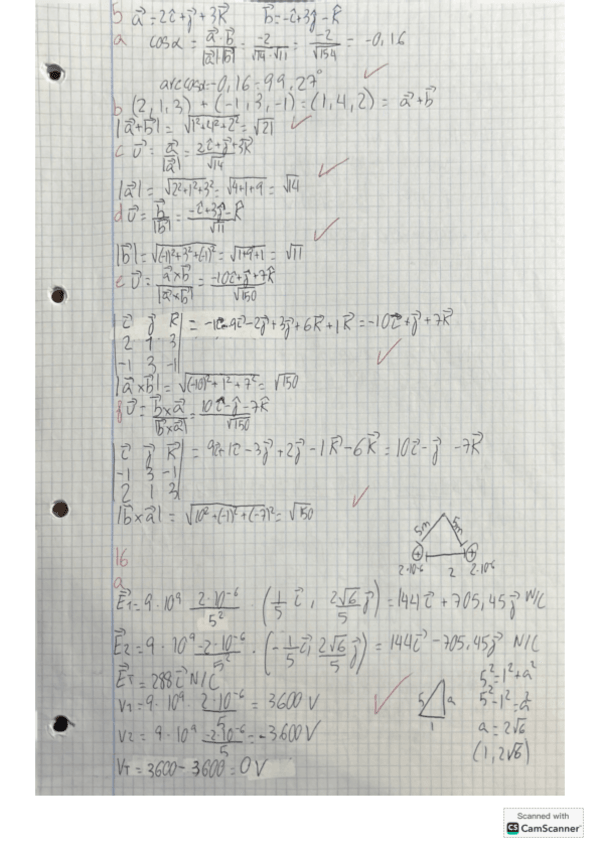 5 a⃗ = 2i⃗ + j⃗ + 3k⃗   b⃗ = -i⃗ + 3j⃗ - k⃗
a cos α = a⃗·b⃗ / |a⃗|·|b⃗| = -2 / √14·√11 = -2 / √154 = -0,16
arc cos α = -0,16 = 99,27°
b (2,1,3) + (-1,3,-1) = (1,4,2) = a⃗+b⃗
|a⃗+b⃗| = √1²+4²+2² = √21
c u⃗ = a⃗ / |a⃗| = 2i⃗+j⃗+3k⃗ / √14
|a⃗| = √2²+1²+3² = √4+1+9 = √14
d u⃗ = b⃗ / |b⃗| = -i⃗+3j⃗-k⃗ / √11
|b⃗| = √(-1)²+3²+(-1)² = √1+9+1 = √11
e u⃗ = a⃗×b⃗ / |a⃗×b⃗| = -10i⃗+j⃗+7k⃗ / √150
|i⃗ j⃗ k⃗| = -1i⃗-9i⃗-2j⃗+3j⃗+6k⃗+1k⃗ = -10i⃗+j⃗+7k⃗
2 1 3
-1 3 -1
|a⃗×b⃗| = √(-10)²+1²+7² = √150
f u⃗ = b⃗×a⃗ / |b⃗×a⃗| = 10i⃗-j⃗-7k⃗ / √150
|i⃗ j⃗ k⃗| = 9i⃗+1i⃗-3j⃗+2j⃗-1k⃗-6k⃗ = 10i⃗-j⃗-7k⃗
-1 3 -1
2 1 3
|b⃗×a⃗| = √10²+(-1)²+(-7)² = √150
5m 5m
+ +
2·10-6 2 2·10-6
16
a
E⃗1 = 9·10⁹ 2·10⁻⁶ / 5² · (1/5 i⃗, 2√6/5 j⃗) = 144i⃗ + 705,45j⃗ N/C
E⃗2 = 9·10⁹ -2·10⁻⁶ / 5² · (-1/5 i⃗, 2√6/5 j⃗) = 144i⃗ - 705,45j⃗ N/C
E⃗T = 288i⃗ N/C
V1 = 9·10⁹ · 2·10⁻⁶ / 5 = 3600 V
V2 = 9·10⁹ · -2·10⁻⁶ / 5 = -3600 V
VT = 3600 - 3600 = 0V
5 a
1
5² = 1² + a²
5² - 1² = a²
a = 2√6
(1, 2√6)
Scanned with
CS CamScanner